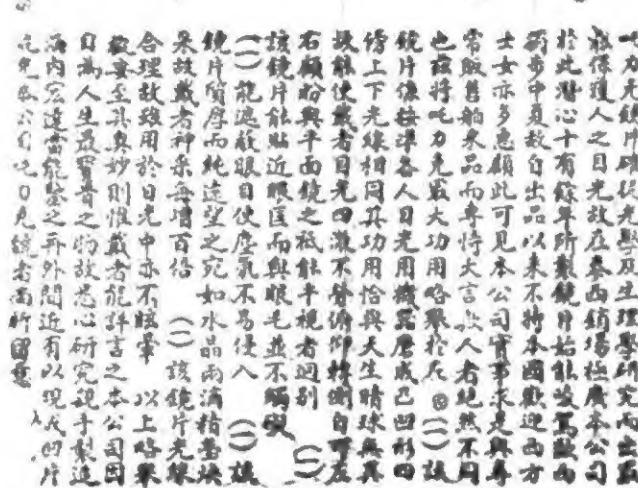 吐力克鏡片確係光學及生理學研究而出
能保護人之目光故在泰西銷場極廣本公司
於此潛心十有餘年所製鏡片始能
步中夏故自出品以來不特本國歡迎西方
士女亦多惠顧此可見本公司實事求是與尋
常販舊舶來品而專恃大言欺人者絕然不同
也茲將吐力克最大功用略舉於左 (一)該
鏡片係按準各人目光用機器磨成凸凹形四
傍上下光線相同其功用恰與天生睛球無異
故能使戴者目光四激不勞俯仰轉側自可左
右顧盼與平面鏡之祇能平視者迥別 (一)
該鏡片能貼近眼匡而與眼毛並不觸礙
(一)能遮蔽眼目使塵氣不易侵入 (一)該
鏡片質厚而純遠望之宛如水晶兩滴精瑩
呆故戴者神采每增百倍 (一)該鏡片光線
合理故雖用於日光中亦不眩暈 以上略舉
要至其奧妙則惟戴者能詳言之本公司因
目為人生最寶貴之物故悉心研究親手製造
海內宏達當能鑒之再外間近有以現成凹片
吐力克鏡者尚祈留意